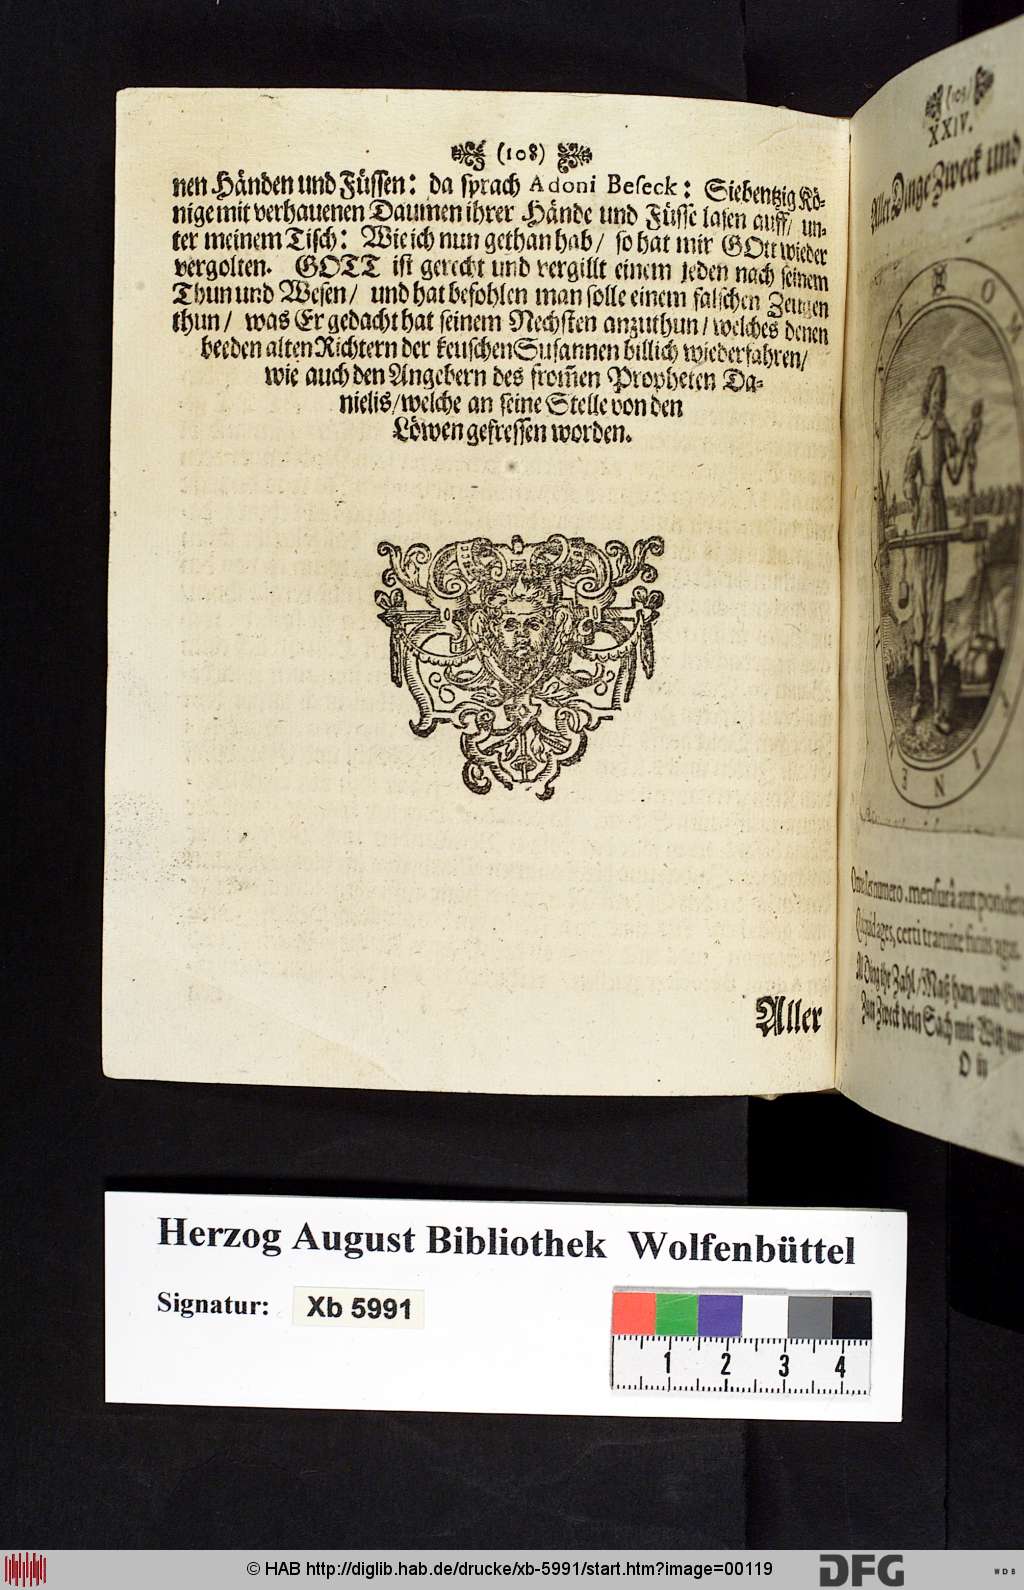 (108)
nen Händen und Füssen: da sprach Adoni Beseck: Siebentzig Kö-
nige mit verhauenen Daumen ihrer Hände und Füsse lasen auff/ un-
ter meinem Tisch: Wie ich nun gethan hab/ so hat mir GOtt wieder
vergolten. GOTT ist gerecht und vergillt einem jeden nach seinem
Thun und Wesen/ und hat befohlen man solle einem falschen Zeugen
thun/ was Er gedacht hat seinem Nechsten anzuthun/ welches denen
beeden alten Richtern der keuschen Susannen billich wiederfahren/
wie auch den Angebern des from̃en Propheten Da-
nielis/ welche an seine Stelle von den
Löwen gefressen worden.
Aller
(109)
XXIV.
Aller Dinge Zweck und
numero, mensurâ aut pondere
ages, certi tramite finis agas.
All Ding ihr Zahl/ Maß han/ und
Zum Zweck dein Sach mit Witz
O ij
Herzog August Bibliothek Wolfenbüttel
Signatur: Xb 5991
1 2 3 4
© HAB http://diglib.hab.de/drucke/xb-5991/start.htm?image=00119
DFG
WDB